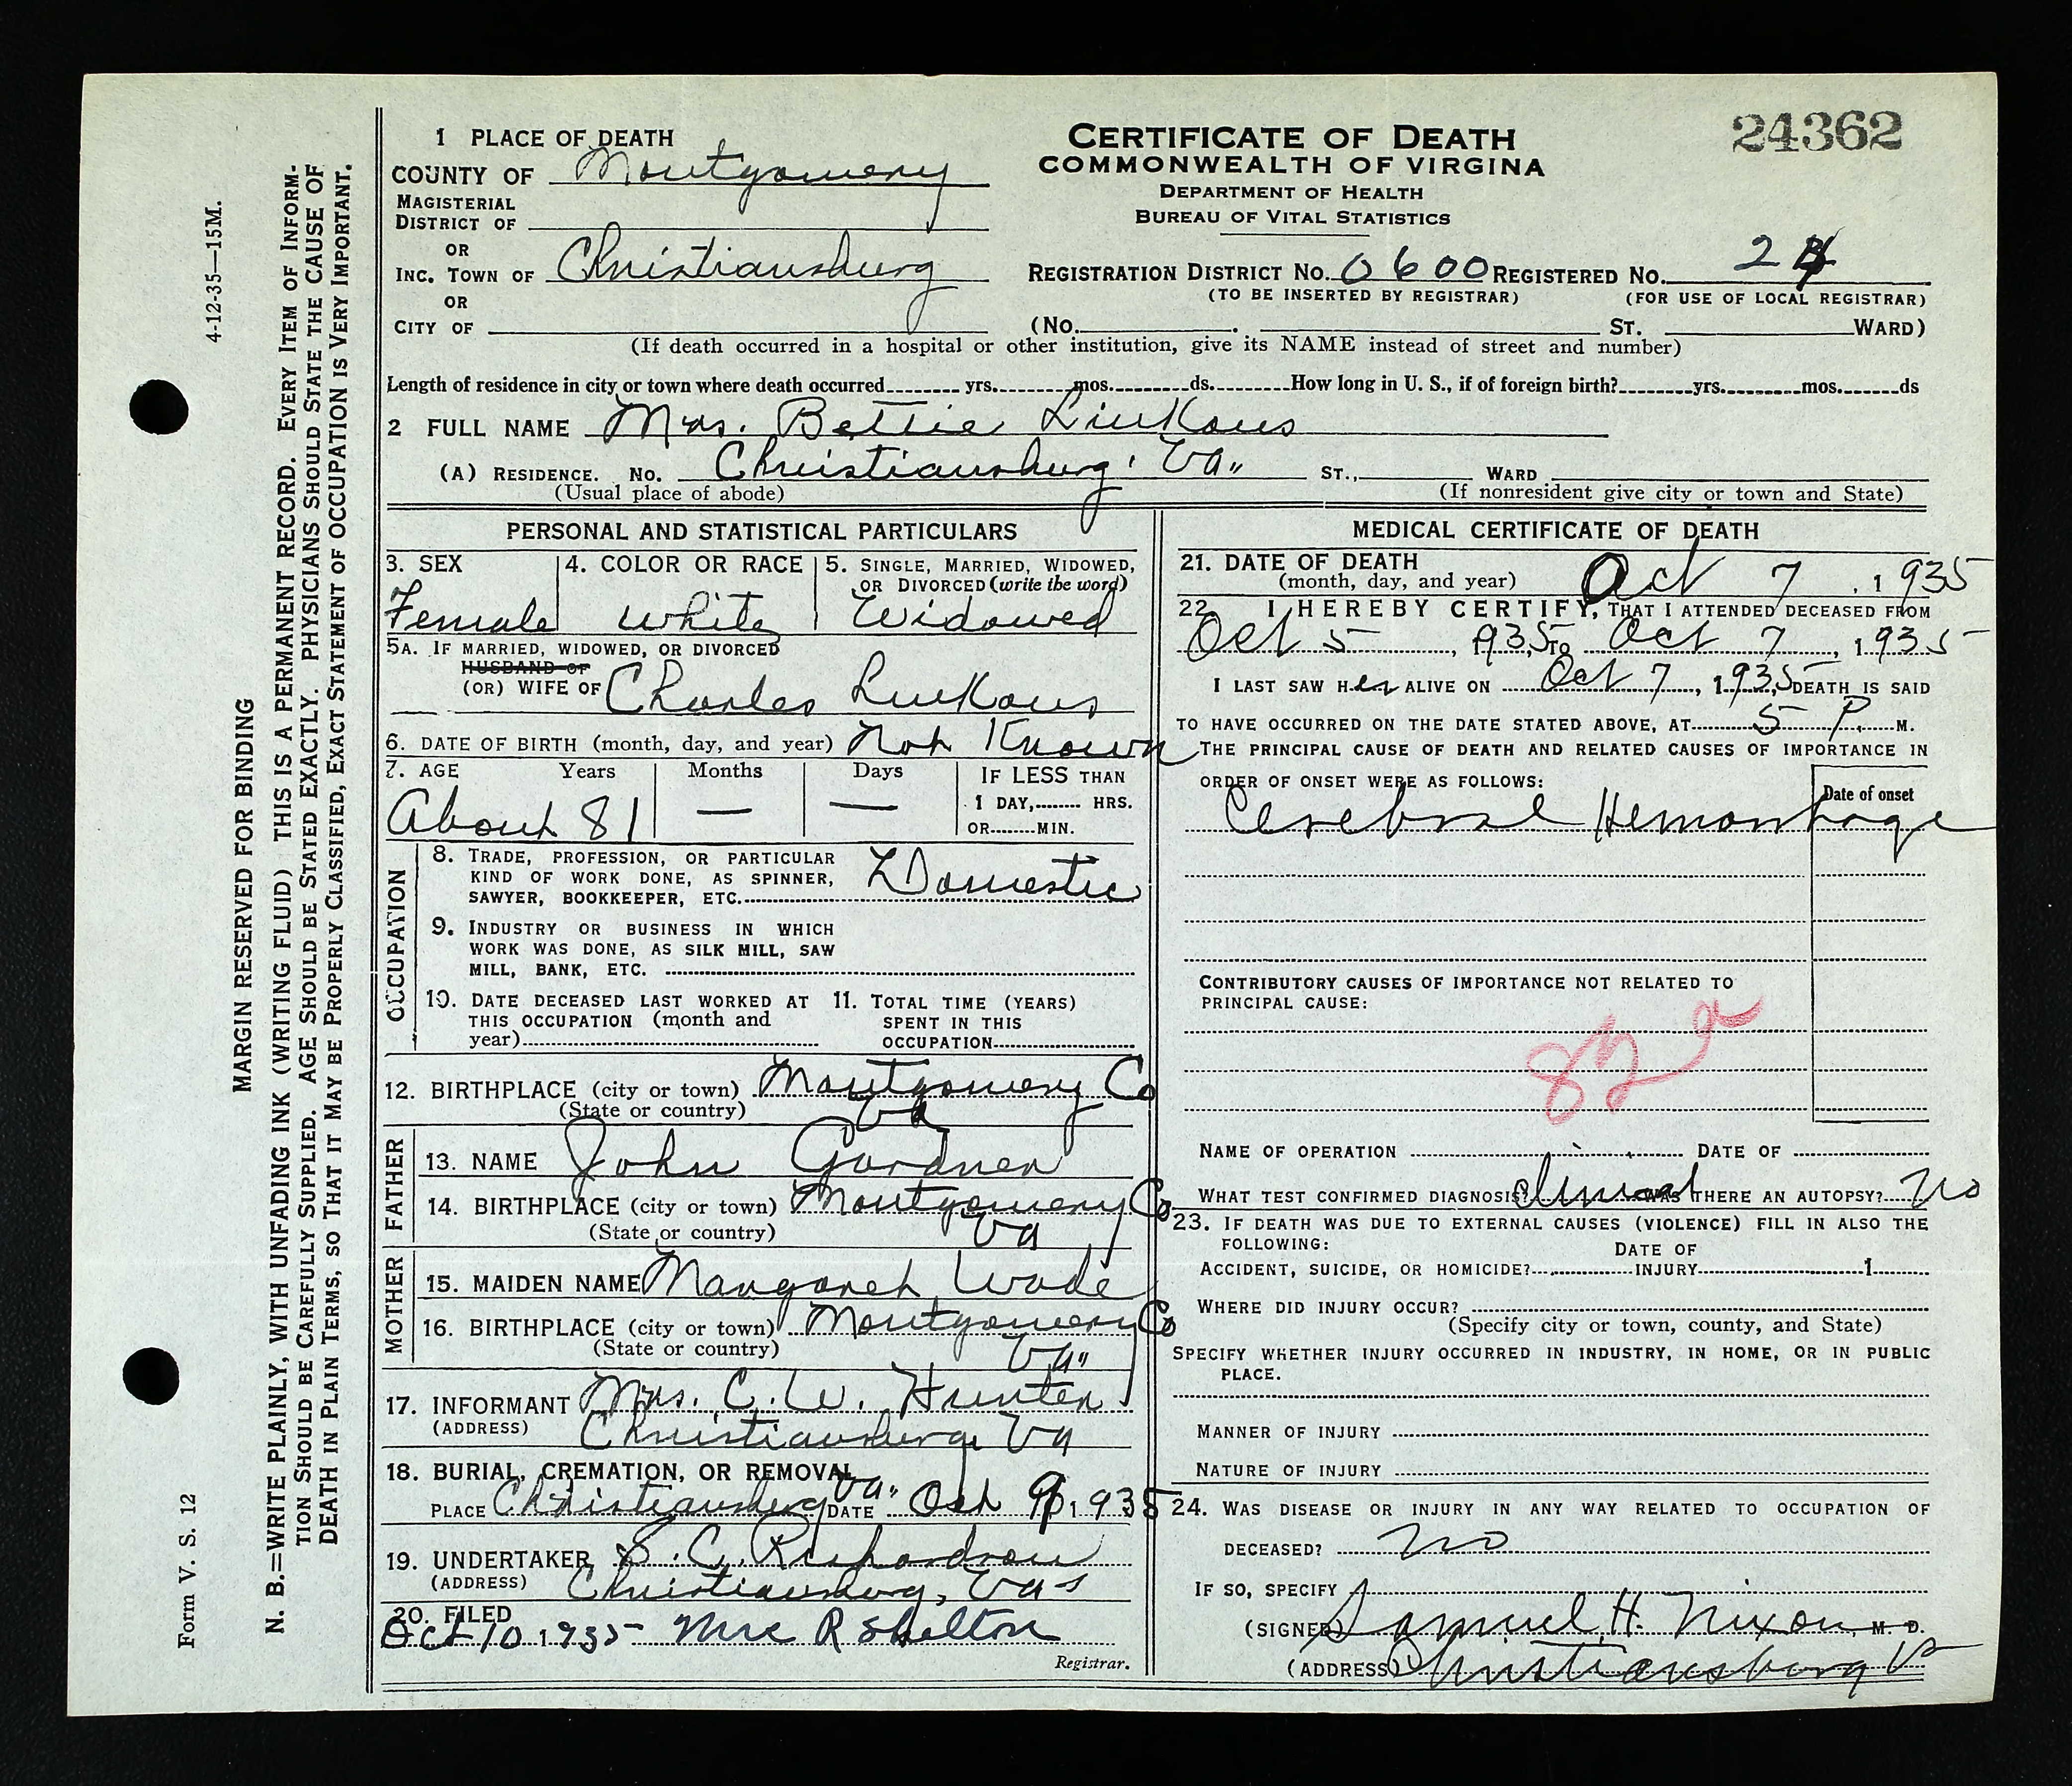 24362
1 PLACE OF DEATH
COUNTY OF Montgomery
MAGISTERIAL
DISTRICT OF
OR
INC. TOWN OF Christiansburg
OR
CITY OF
CERTIFICATE OF DEATH
COMMONWEALTH OF VIRGINA
DEPARTMENT OF HEALTH
BUREAU OF VITAL STATISTICS
REGISTRATION DISTRICT NO. 0600 REGISTERED NO. 24
(TO BE INSERTED BY REGISTRAR) (FOR USE OF LOCAL REGISTRAR)
(No. ST. WARD)
(If death occurred in a hospital or other institution, give its NAME instead of street and number)
Length of residence in city or town where death occurred yrs. mos. ds. How long in U. S., if of foreign birth? yrs. mos. ds
2 FULL NAME Mrs. Bettie Linkous
(A) RESIDENCE. No. Christiansburg, Va" ST., WARD
(Usual place of abode) (If nonresident give city or town and State)
PERSONAL AND STATISTICAL PARTICULARS
3. SEX 4. COLOR OR RACE 5. SINGLE, MARRIED, WIDOWED,
OR DIVORCED (write the word)
Female White Widowed
5A. IF MARRIED, WIDOWED, OR DIVORCED
HUSBAND OF
(OR) WIFE OF Charles Linkous
6. DATE OF BIRTH (month, day, and year) Not Known
7. AGE Years Months Days IF LESS THAN
1 DAY, HRS.
OR MIN.
About 81 — —
OCCUPATION
8. TRADE, PROFESSION, OR PARTICULAR
KIND OF WORK DONE, AS SPINNER,
SAWYER, BOOKKEEPER, ETC. Domestic
9. INDUSTRY OR BUSINESS IN WHICH
WORK WAS DONE, AS SILK MILL, SAW
MILL, BANK, ETC.
10. DATE DECEASED LAST WORKED AT
THIS OCCUPATION (month and
year)
11. TOTAL TIME (YEARS)
SPENT IN THIS
OCCUPATION
12. BIRTHPLACE (city or town) Montgomery Co
(State or country) Va
FATHER
13. NAME John Gardner
14. BIRTHPLACE (city or town) Montgomery Co
(State or country) Va
MOTHER
15. MAIDEN NAME Margaret Wade
16. BIRTHPLACE (city or town) Montgomery Co
(State or country) Va"
17. INFORMANT Mrs. C. W. Hunter
(ADDRESS) Christiansburg Va
18. BURIAL, CREMATION, OR REMOVAL
PLACE Christiansburg Va" DATE Oct 9, 1935
19. UNDERTAKER S. C. Richardson
(ADDRESS) Christiansburg, Va
20. FILED
Oct 10 1935 Mrs R Shelton
Registrar.
MEDICAL CERTIFICATE OF DEATH
21. DATE OF DEATH
(month, day, and year) Oct 7, 1935
22. I HEREBY CERTIFY, THAT I ATTENDED DECEASED FROM
Oct 5, 1935, TO Oct 7, 1935
I LAST SAW HER ALIVE ON Oct 7, 1935, DEATH IS SAID
TO HAVE OCCURRED ON THE DATE STATED ABOVE, AT 5 P. M.
THE PRINCIPAL CAUSE OF DEATH AND RELATED CAUSES OF IMPORTANCE IN
ORDER OF ONSET WERE AS FOLLOWS:
Date of onset
Cerebral Hemorrhage
CONTRIBUTORY CAUSES OF IMPORTANCE NOT RELATED TO
PRINCIPAL CAUSE:
82 a
NAME OF OPERATION DATE OF
WHAT TEST CONFIRMED DIAGNOSIS? Clinical WAS THERE AN AUTOPSY? No
23. IF DEATH WAS DUE TO EXTERNAL CAUSES (VIOLENCE) FILL IN ALSO THE
FOLLOWING:
ACCIDENT, SUICIDE, OR HOMICIDE? DATE OF INJURY 1
WHERE DID INJURY OCCUR?
(Specify city or town, county, and State)
SPECIFY WHETHER INJURY OCCURRED IN INDUSTRY, IN HOME, OR IN PUBLIC
PLACE.
MANNER OF INJURY
NATURE OF INJURY
24. WAS DISEASE OR INJURY IN ANY WAY RELATED TO OCCUPATION OF
DECEASED? No
IF SO, SPECIFY
(SIGNED) Samuel H. Nixon, M. D.
(ADDRESS) Christiansburg Va
4-12-35—15M.
Form V. S. 12
MARGIN RESERVED FOR BINDING
N. B.=WRITE PLAINLY, WITH UNFADING INK (WRITING FLUID) THIS IS A PERMANENT RECORD. EVERY ITEM OF INFORM-
TION SHOULD BE CAREFULLY SUPPLIED. AGE SHOULD BE STATED EXACTLY. PHYSICIANS SHOULD STATE THE CAUSE OF
DEATH IN PLAIN TERMS, SO THAT IT MAY BE PROPERLY CLASSIFIED, EXACT STATEMENT OF OCCUPATION IS VERY IMPORTANT.